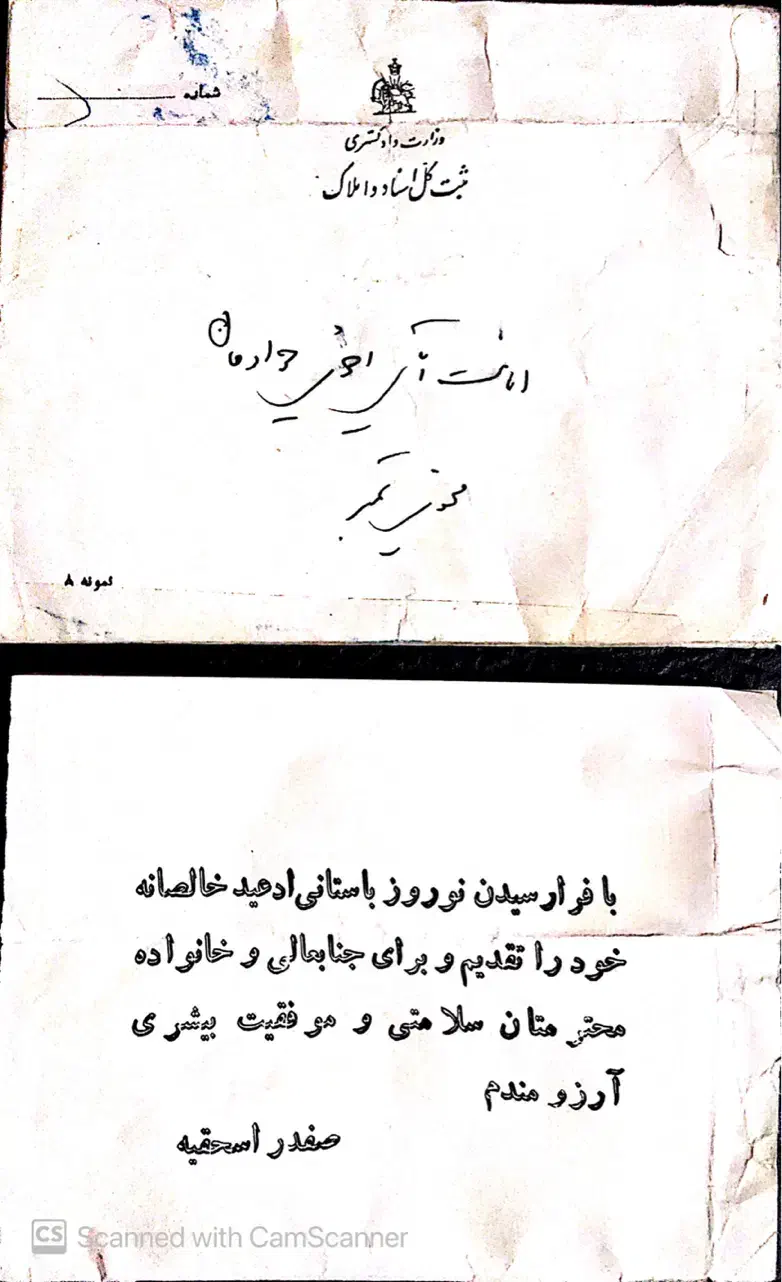 شماره
وزارت دادگستری
ثبت کل اسناد و املاک
آقای
نمونه ۸
با فرا رسیدن نوروز باستانی ادعید خالصانه
خود را تقدیم و برای جنابعالی و خانواده
محترمتان سلامتی و موفقیت بیشری
آرزومندم
صفدر اسحقیه
CS Scanned with CamScanner